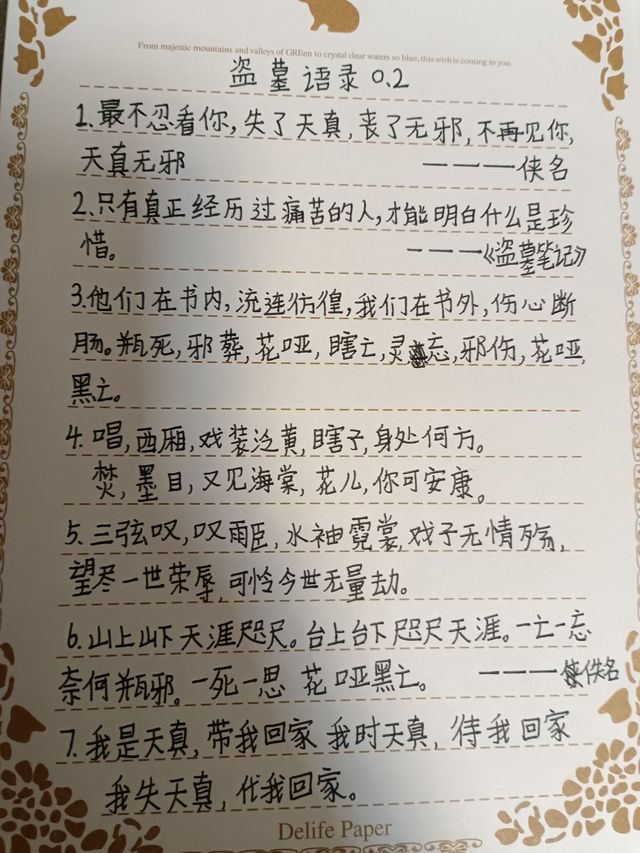 From majestic mountains and valleys of GREen to crystal clear waters so blue, this wish is coming to you.
盗墓语录0.2
1.最不忍看你,失了天真,丧了无邪,不再见你,
天真无邪 ————侠名
2.只有真正经历过痛苦的人,才能明白什么是珍
惜。 ———《盗墓笔记》
3.他们在书内,流连彷徨,我们在书外,伤心断
肠。瓶死,邪葬,花哑,瞎亡,灵忘,邪伤,花哑,
黑亡。
4.唱,西厢,戏装泛黄,瞎子,身处何方。
焚,墨目,又见海棠,花儿,你可安康。
5.三弦叹,叹雨臣,水袖霓裳,戏子无情殇,
望尽一世荣辱,可怜今世无量劫。
6.山上山下天涯咫尺。台上台下咫尺天涯。一亡一忘
奈何瓶邪。一死一思 花哑黑亡。 ————佚名
7.我是天真,带我回家 我时天真,待我回家
我失天真,代我回家。
Delife Paper